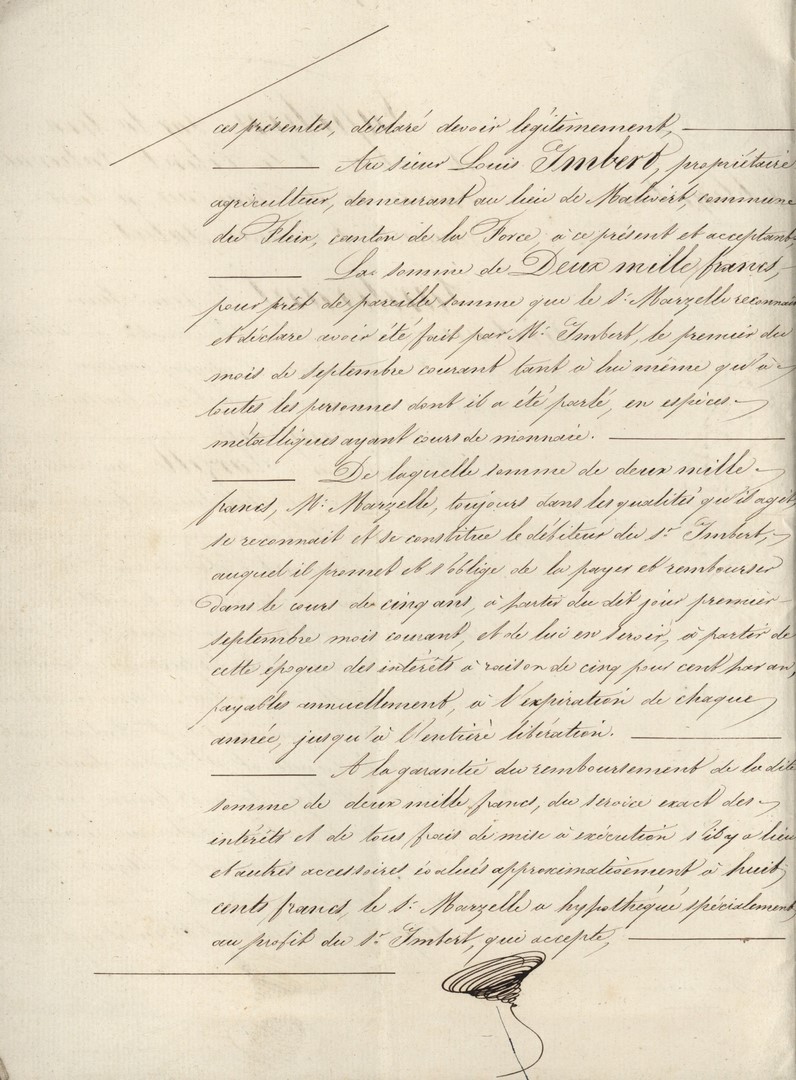 ces présentes, déclaré devoir légitimement,
Au sieur Louis Imbert, propriétaire
agriculteur, demeurant au lieu de Malivert, commune
du Fleix, canton de la Force, à ce présent et acceptant,
La somme de Deux mille francs,
pour prêt de pareille somme que le S. Marzelle reconnait
et déclare avoir été fait par M. Imbert, le premier du
mois de septembre courant tant à lui même qu'à
toutes les personnes dont il a été parlé, en espèces
métalliques ayant cours de monnaie.
De laquelle somme de deux mille
francs, M. Marzelle, toujours dans les qualités qu'il agit,
se reconnait et se constitue le débiteur du sr Imbert,
auquel il promet et s'oblige de la payer et rembourser
dans le cours de cinq ans, à partir du dit jour premier
septembre mois courant, et de lui en servir, à partir de
cette époque des intérêts à raison de cinq pour cent par an,
payables annuellement, à l'expiration de chaque
année, jusqu'à l'entière libération.
A la garantie du remboursement de la dite
somme de deux mille francs, du service exact des
intérêts et de tous frais de mise à exécution s'il y a lieu
et autres accessoires évalués approximativement à huit
cents francs, le S. Marzelle a hypothéqué spécialement
au profit du Sr Imbert, qui accepte,